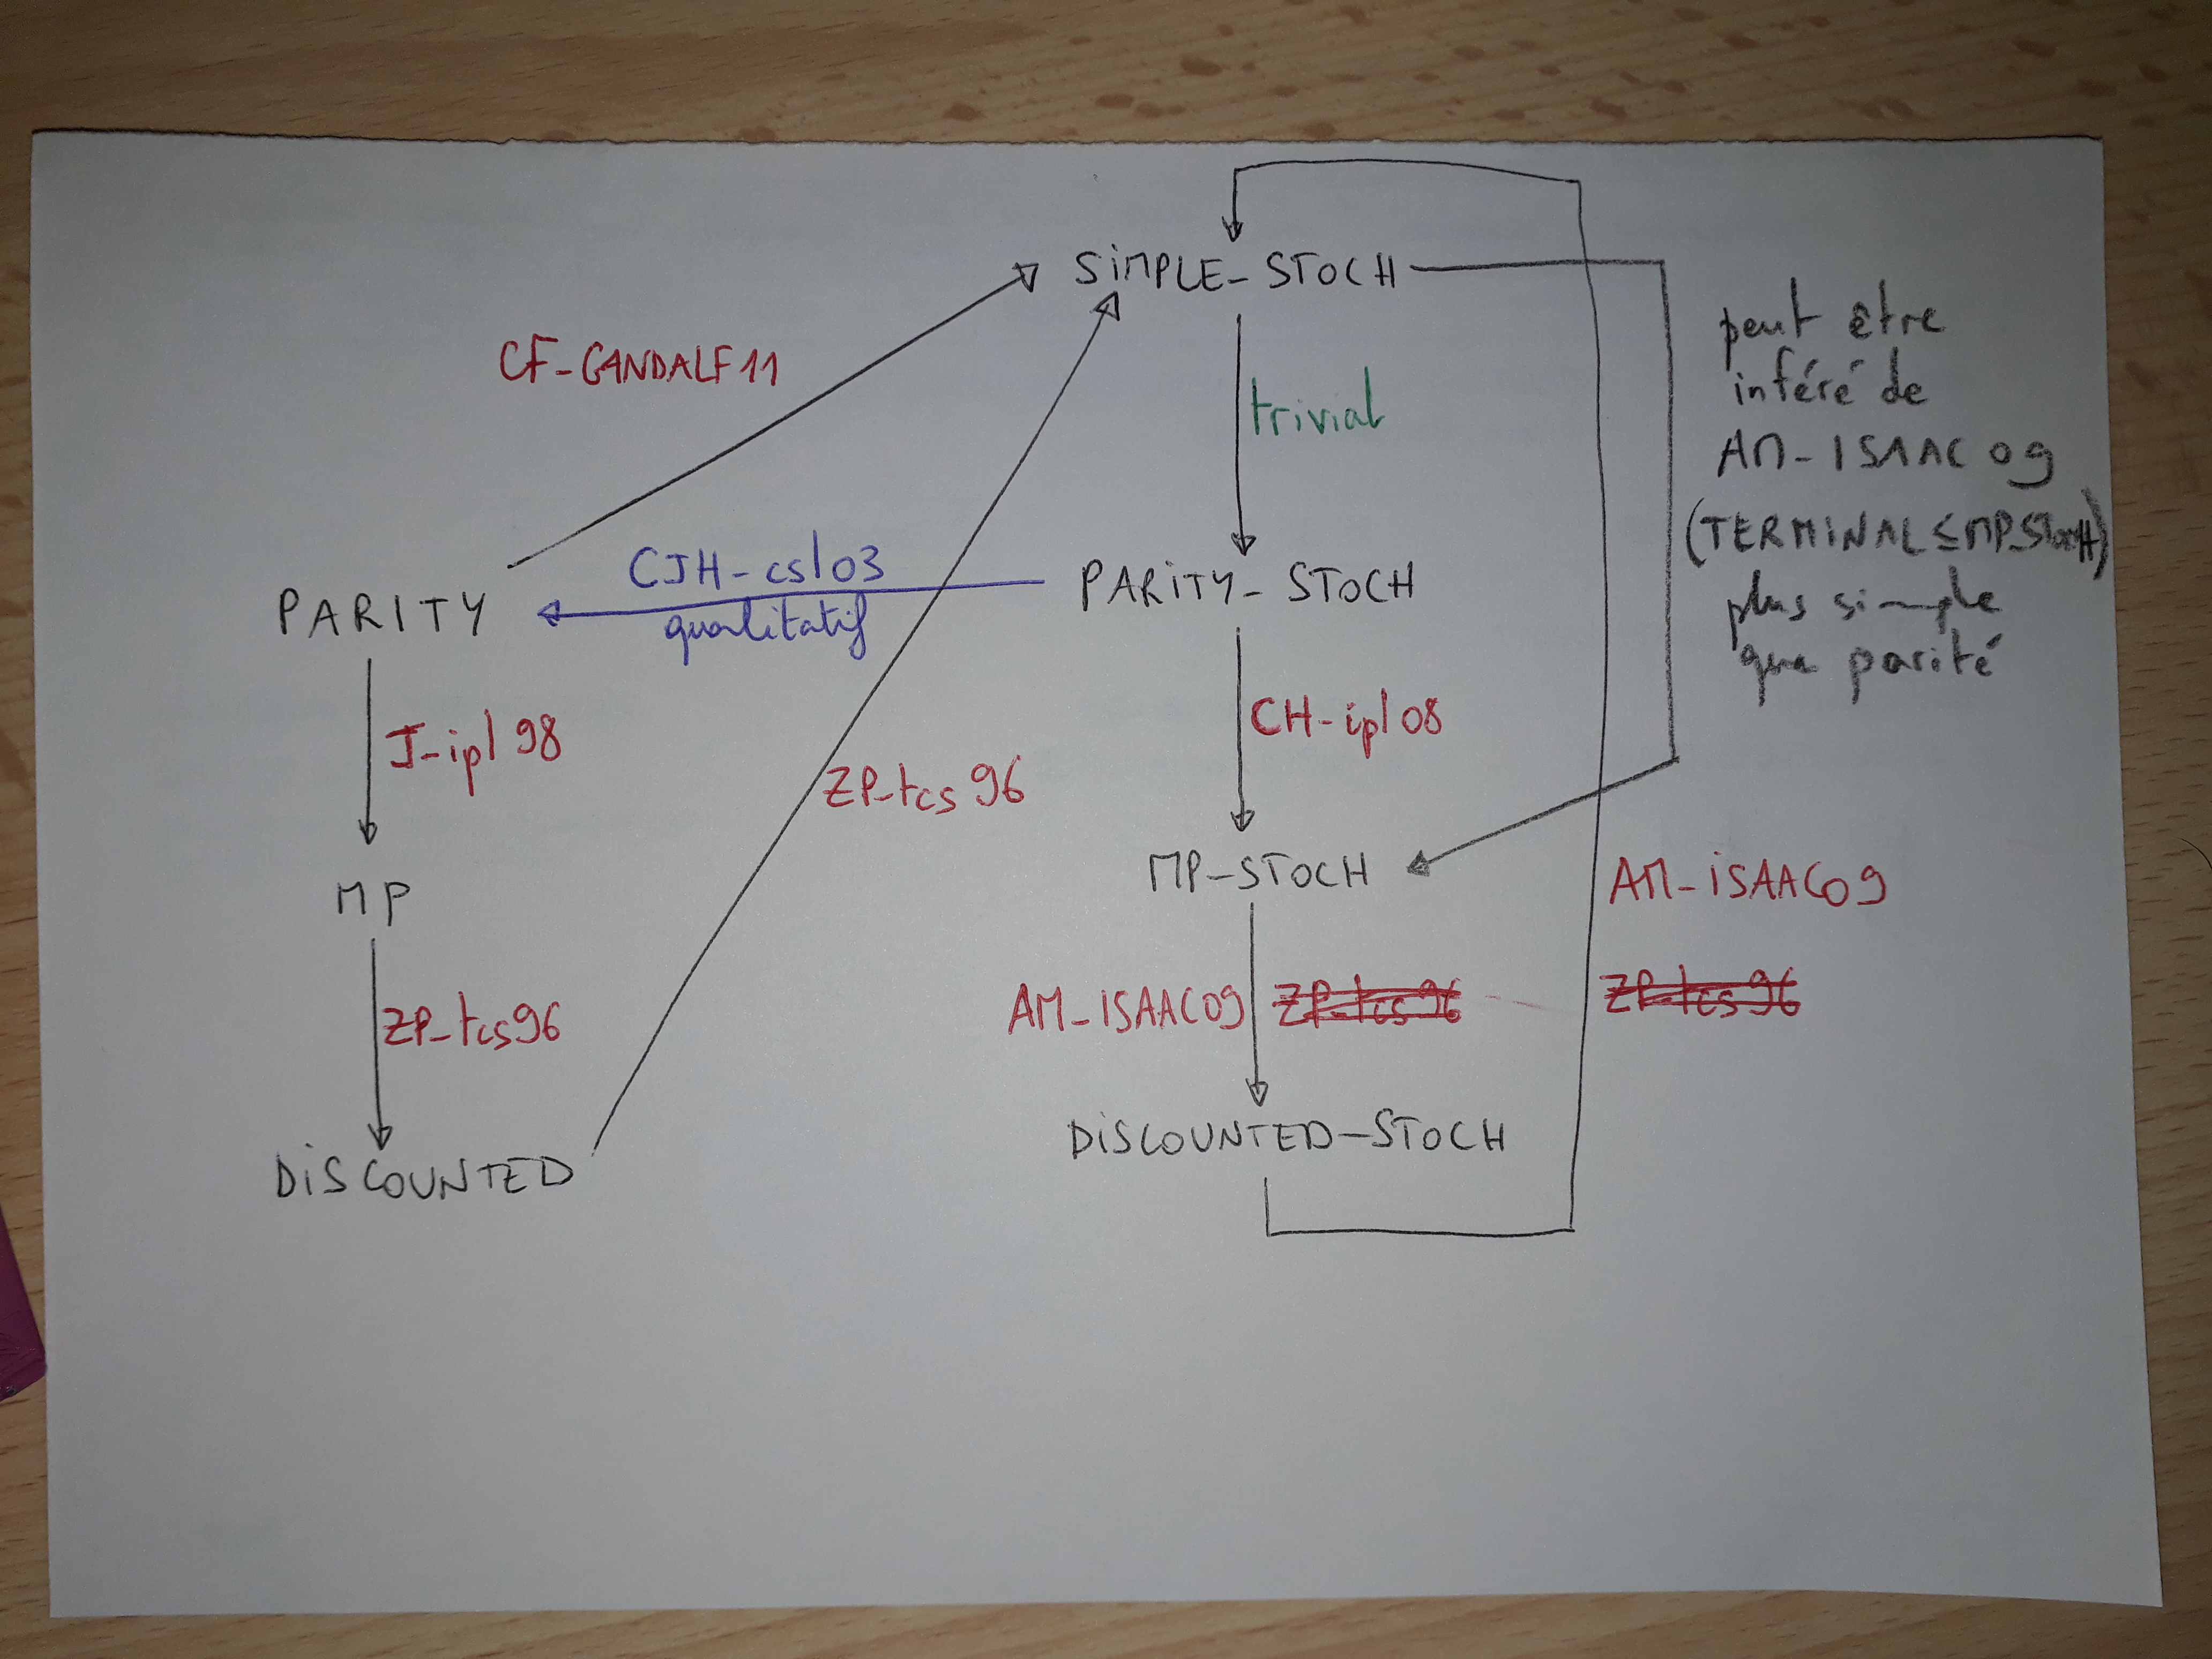 SiMPLE_STOCH
peut être
inféré de
AM-ISAAC 09
(TERMINAL≤MP_STOCH)
plus simple
que parité
CF-GANDALF11
trivial
CJH-csl03
qualitatif
PARITY
PARiTY_STOCH
J-ipl 98
CH-ipl08
ZP-tcs 96
MP
MP-STOCH
AM-iSAAC09
ZP-tcs96
AM-ISAAC09
ZP-tcs96
ZP-tcs96
DiSCOUNTED
DiSCOUNTED-STOCH